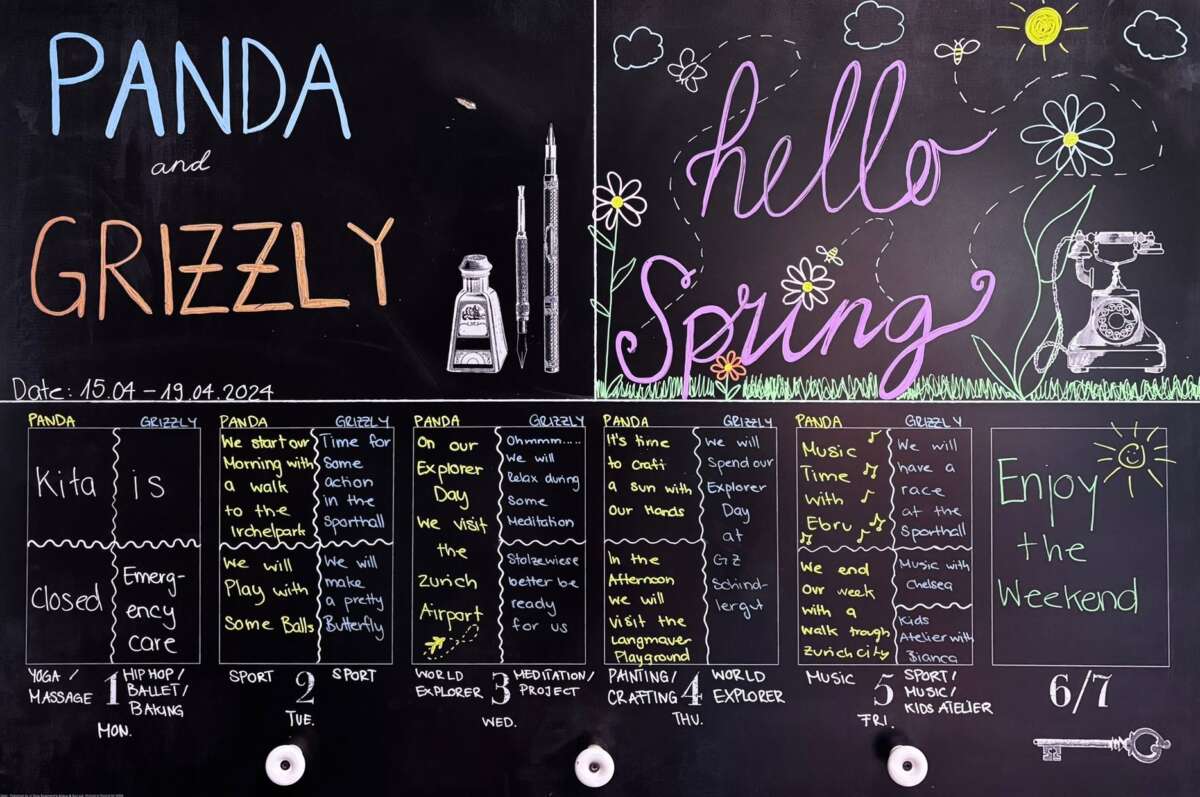 PANDA
and
GRIZZLY
Date: 15.04 - 19.04.2024
hello
Spring
PANDA
GRIZZLY
Kita
is
Closed
Emerg-
ency
care
YOGA /
MASSAGE
1
HIP HOP /
BALLET /
BAKING
MON.
PANDA
GRIZZLY
We start our
Morning with
a walk
to the
Irchelpark
Time for
some
action
in the
Sporthall
We will
Play with
Some Balls
We will
make
a pretty
Butterfly
SPORT
2
SPORT
TUE.
PANDA
GRIZZLY
On our
Explorer
Day
we visit
the
Zurich
Airport
Ohmmm.....
We will
Relax during
Some
Meditation
Stolzewiese
better be
ready
for us
WORLD
EXPLORER
3
MEDITATION/
PROJECT
WED.
PANDA
GRIZZLY
It's time
to craft
a sun with
our Hands
In the
Afternoon
we will
visit the
Langmauer
Playground
We will
Spend our
Explorer
Day
at
GZ
Schind-
lergut
PAINTING/
CRAFTING
4
WORLD
EXPLORER
THU.
PANDA
GRIZZLY
Music
Time
with
Ebru
We end
our week
with a
walk trough
Zurich City
We will
have a
race
at the
Sporthall
Music with
Chelsea
Kids
Atelier with
Bianca
MUSIC
5
SPORT/
MUSIC/
KIDS ATELIER
FRI.
Enjoy
the
Weekend
6/7